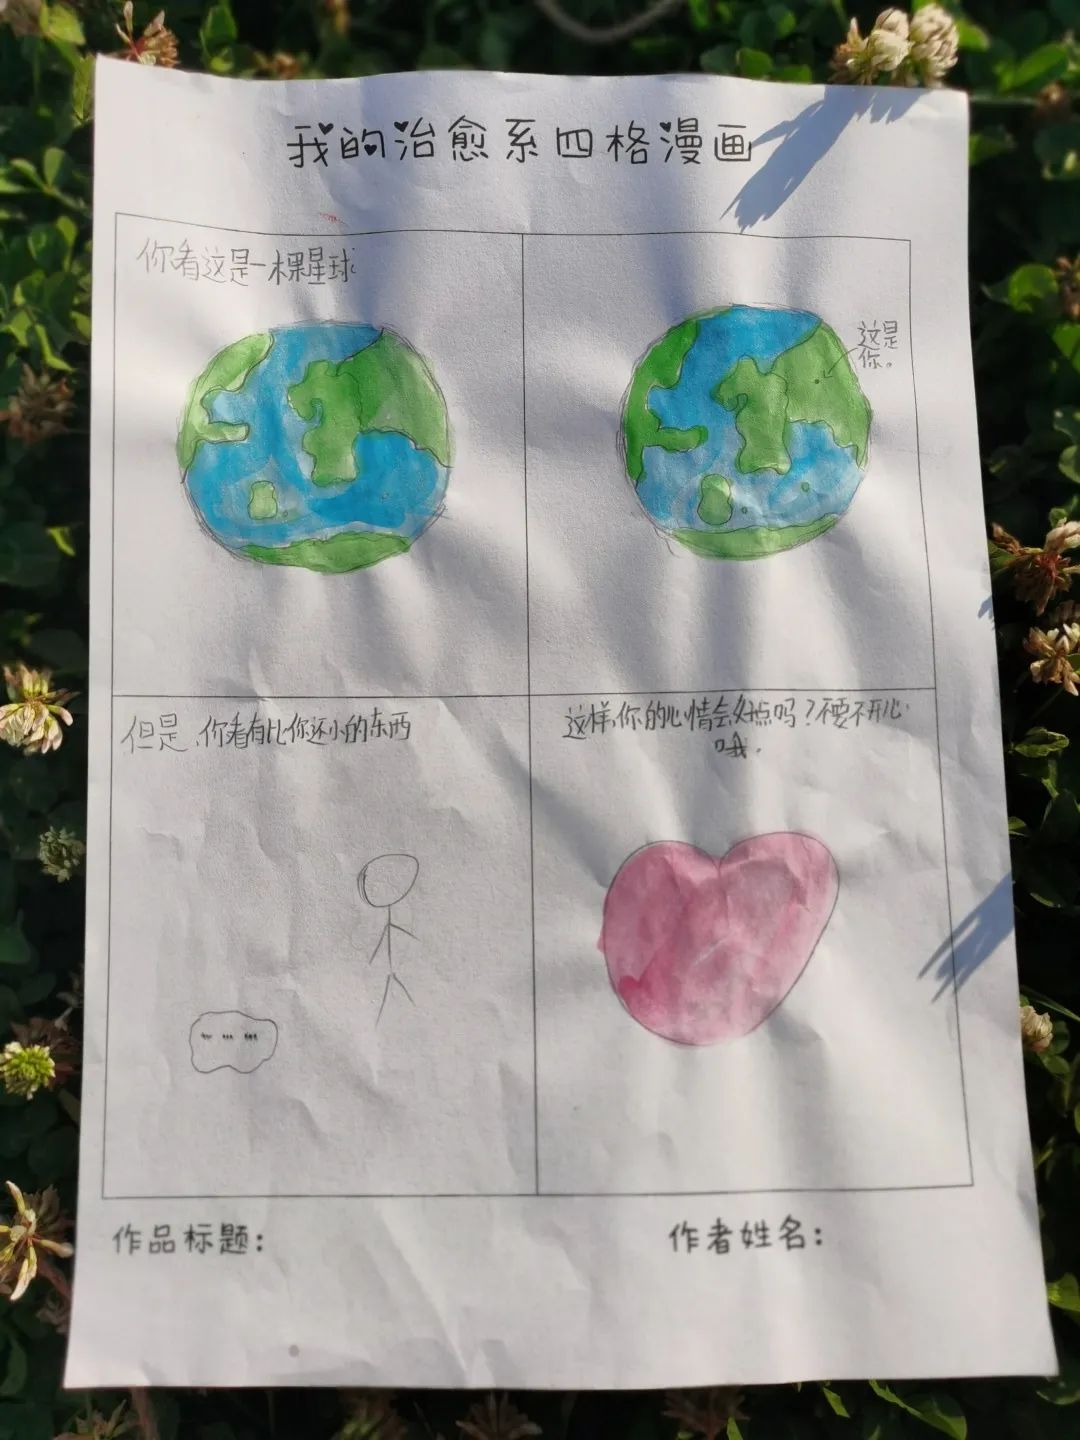 我的治愈系四格漫画
你看这是一棵星球
这是
你。
但是、你看有比你还小的东西
这样,你的心情会好点吗？不要不开心
哦.
作品标题：
作者姓名：